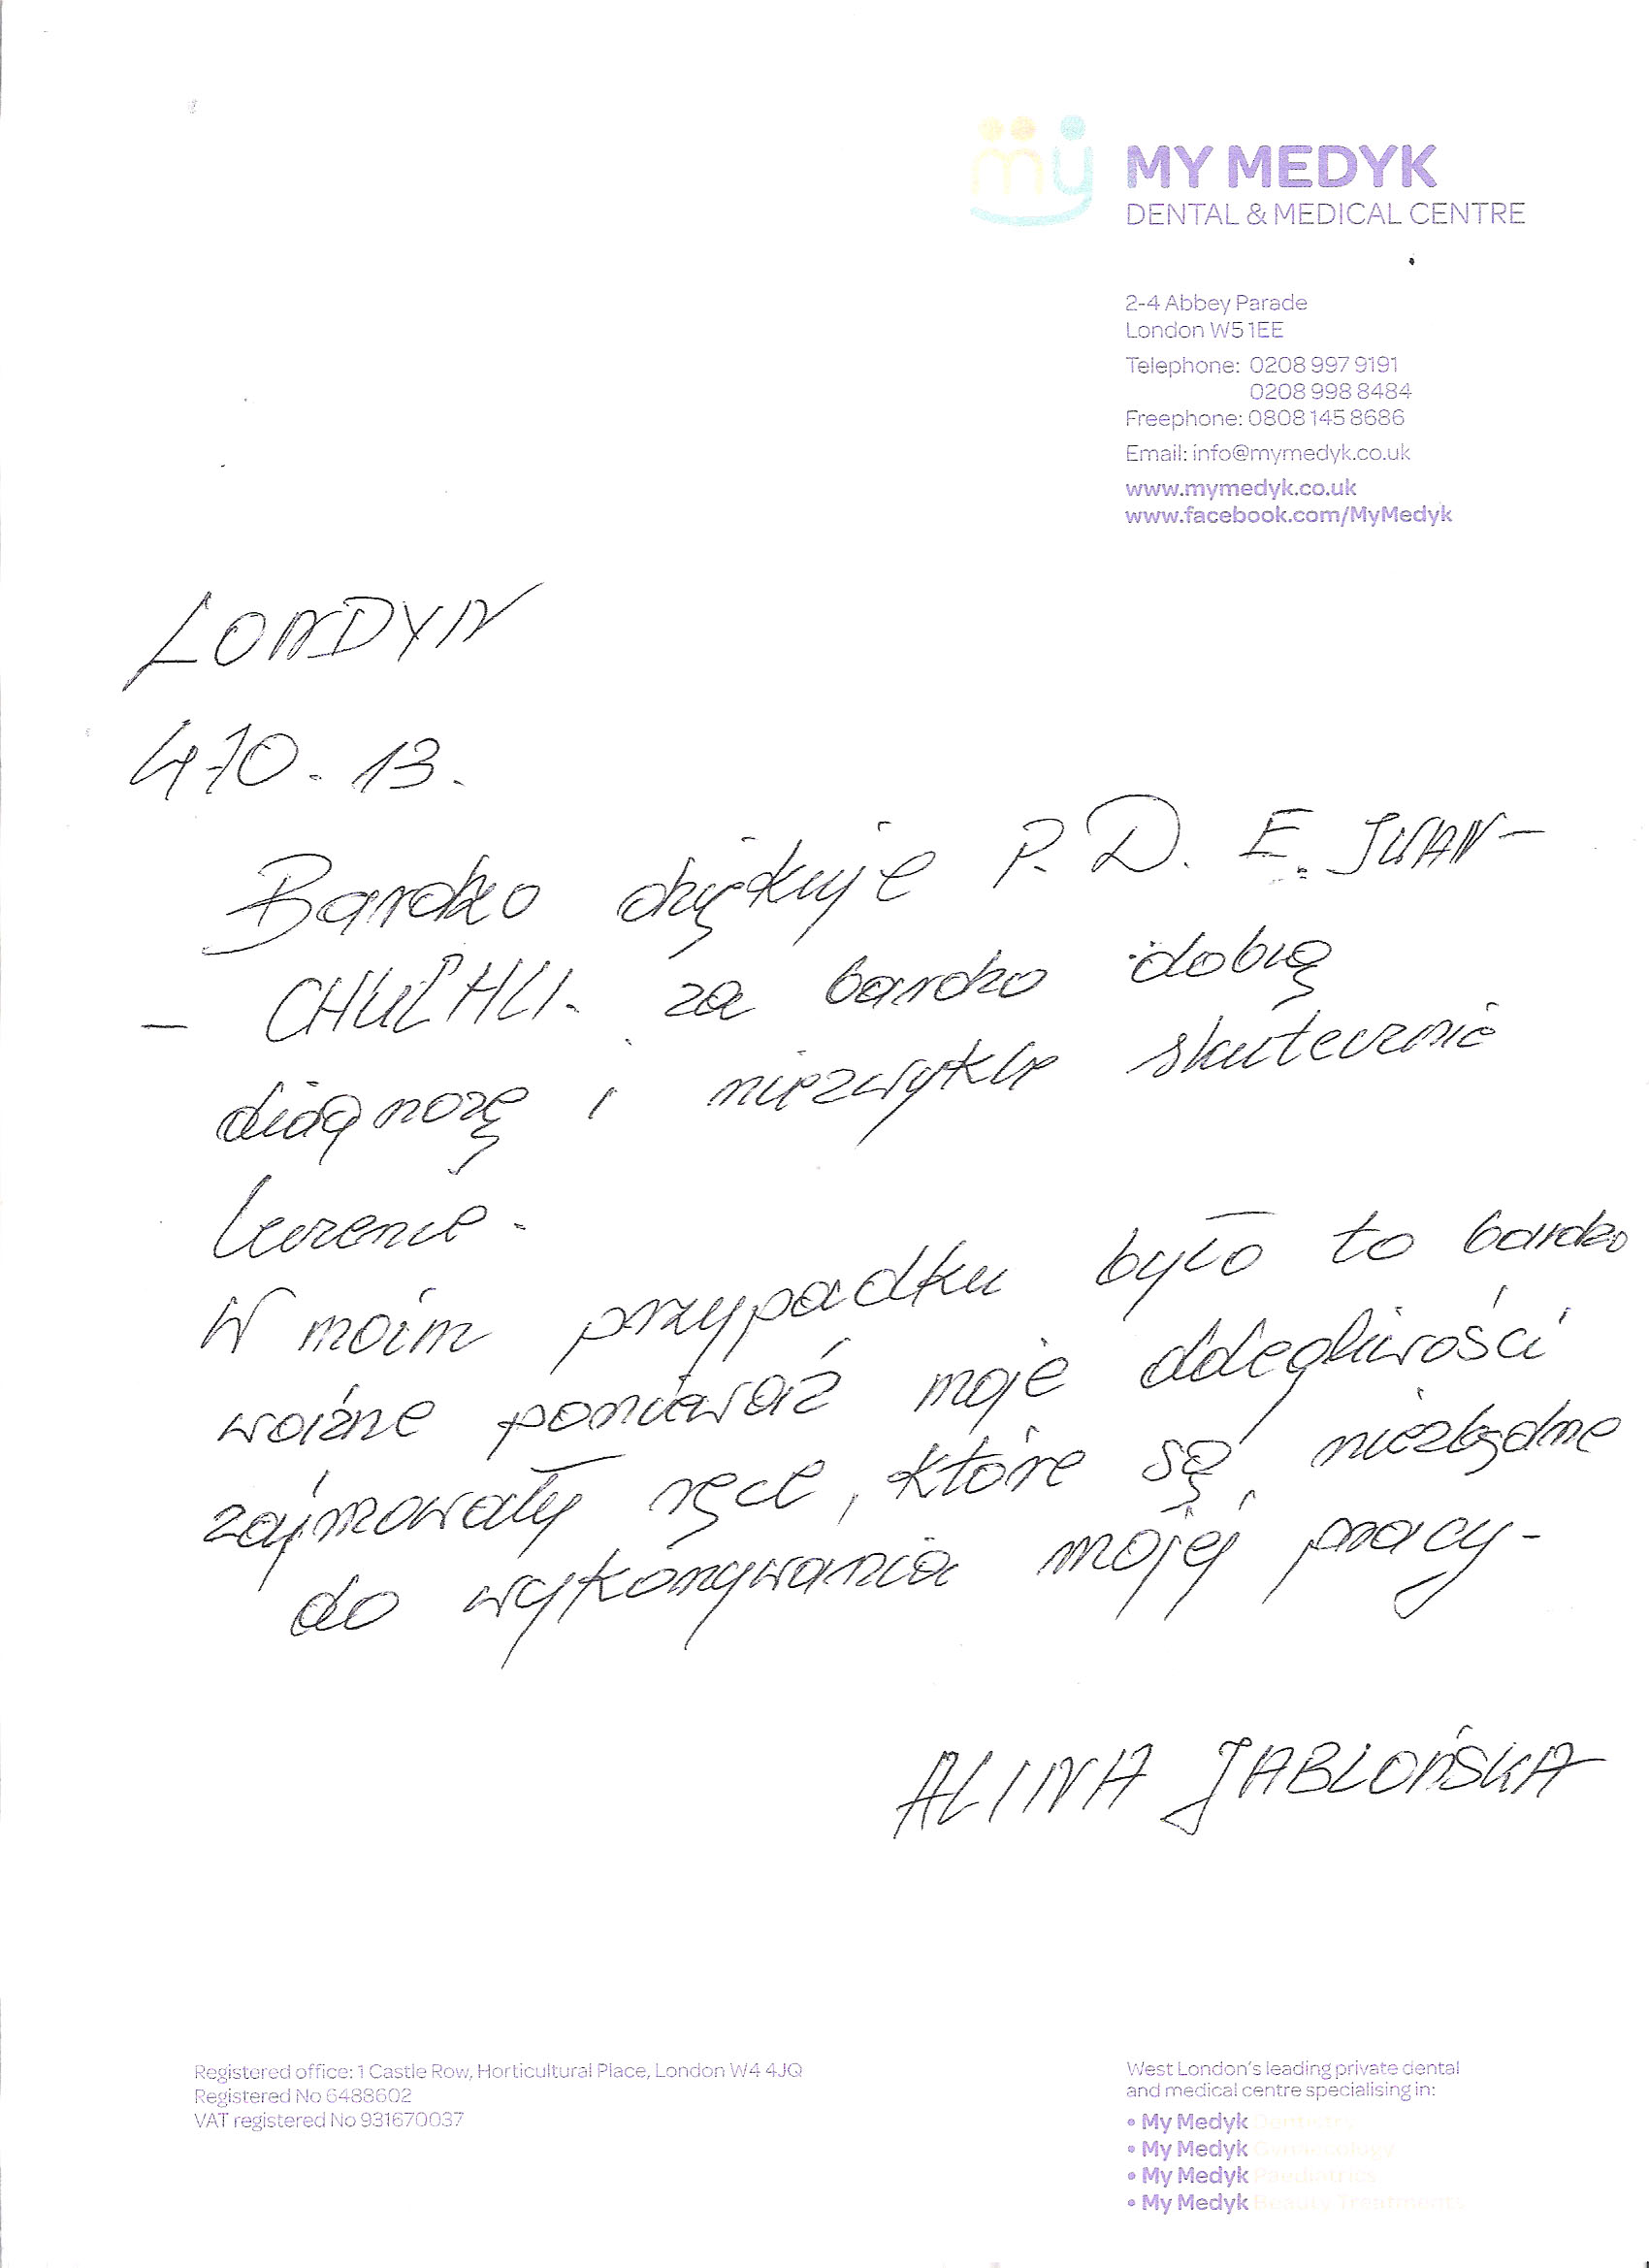 my
MY MEDYK
DENTAL & MEDICAL CENTRE
2-4 Abbey Parade
London W5 1EE
Telephone: 0208 997 9191
0208 998 8484
Freephone: 0808 145 8686
Email: info@mymedyk.co.uk
www.mymedyk.co.uk
www.facebook.com/MyMedyk
LONDYN
4.10.13.
Bardzo dziękuje P. D. E.
za bardzo dobrą
diagnozę i niezwykle skutecznie
leczenie.
W moim przypadku było to bardzo
ważne ponieważ moje dolegliwości
zajmowały ręce, które są niezbędne
do wykonywania mojej pracy-
ALINA JABŁOŃSKA
Registered office: 1 Castle Row, Horticultural Place, London W4 4JQ
Registered No 6488602
VAT registered No 931670037
West London's leading private dental
and medical centre specialising in:
• My Medyk Dentistry
• My Medyk Gynaecology
• My Medyk Paediatrics
• My Medyk Beauty Treatments